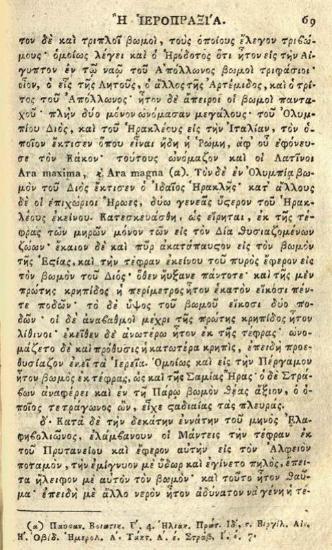 Ἡ ἹΕΡΟΠΡΑΞΙ´Α. 69
τον δὲ καὶ τριπλοῖ βωμοὶ, τοὺς ὁποίους ἔλεγον τριβώ-
μους· ὁμοίως λέγει καὶ ὁ Ἡρόδοτος ὅτι ἦτον εἰς τὴν Αἴ-
γυπτον ἐν τῷ ναῷ τοῦ Ἀπόλλωνος βωμοὶ τριφάσιοι·
οἷον, ὁ εἷς τῆς Λητοῦς, ὁ ἄλλος τῆς Ἀρτέμιδος, καὶ ὁ τρί-
τος τοῦ Ἀπόλλωνος· ἦτον δὲ ἄπειροι οἱ βωμοὶ πανταχ-
χοῦ· πλὴν δύο μόνον ὠνόμασαν μεγάλους· τοῦ Ὀλυμ-
πίου Διὸς, καὶ τοῦ Ἡρακλέους εἰς τὴν Ἰταλίαν, τὸν ὁ-
ποῖον ἔκτισεν ὅπου εἶναι ἤδη ἡ Ῥώμη, ἀφ' οὗ ἐφόνευ-
σε τὸν Κάκον· τούτους ὠνόμαζον καὶ οἱ Λατῖνοι
Ara maxima, ϗ Ara magna (α). Τὸν δὲ ἐν Ὀλυμπίᾳ βω-
μὸν τοῦ Διὸς ἔκτισεν ὁ Ἰδαῖος Ἡρακλῆς· κατ' ἄλλους
δὲ οἱ ἐπιχώριοι Ἥρωες, δύω γενεὰς ὕστερον τοῦ Ἡρακ-
λέους ἐκείνου. Κατεσκευάσθη, ὡς εἴρηται, ἐκ τῆς τέ-
φρας τῶν μηρῶν μόνον τῶν εἰς τὸν Δία θυσιαζομένων
ζώων· ἔκαιον δὲ καὶ πῦρ ἀκατάπαυστον εἰς τὸν βωμὸν
τῆς Ἑστίας, καὶ τὴν τέφραν ἐκείνου τοῦ πυρὸς ἔφερον εἰς
τὸν βωμὸν τοῦ Διός· ὅθεν ηὔξανε πάντοτε· καὶ τῆς μὲν
πρώτης κρηπίδος ἡ περίμετρος ἦτον ἑκατὸν εἴκοσι πέν-
τε ποδῶν· τὸ δὲ ὕψος τοῦ βωμοῦ εἴκοσι δύο πο-
δῶν· οἱ δὲ ἀναβαθμοὶ μέχρι τῆς πρώτης κρηπῖδος ἦτον
λίθινοι· ἐκεῖθεν δὲ ἀνωτέρω ἦτον ἐκ τῆς τέφρας· ὠνο-
μάζετο δὲ καὶ πρόθυσις ἡ κατωτέρα κρηπὶς, ἐπειδὴ προε-
θυσίαζον ἐκεῖ τὰ Ἱερεῖα. Ὁμοίως καὶ εἰς τὴν Πέργαμον
ἦτον βωμὸς ἐκ τέφρας, ὡς καὶ τῆς Σαμίας Ἥρας· ὁ δὲ Στρά-
βων ἀναφέρει καὶ ἐν τῇ Πάρῳ βωμὸν θέας ἄξιον, ὁ ὁ-
ποῖος τετράγωνος ὢν, εἶχε σταδιαίας τὰς πλευράς.
δ. Κατὰ δὲ τὴν δεκάτην ἐννάτην τοῦ μηνὸς Ἐλα-
φηβολιῶνος, ἐλάμβανον οἱ Μάντεις τὴν τέφραν ἐκ
τοῦ Πρυτανείου καὶ ἔφερον αὐτὴν εἰς τὸν Ἀλφειὸν
ποταμὸν, τὴν ἐμίγνυον μὲ ὕδωρ καὶ ἐγίνετο πηλὸς, ἔπει-
τα ἤλειφον μὲ αὐτὸν τὸν βωμόν· καὶ τοῦτο ἦτον θαῦ-
μα· ἐπειδὴ μὲ ἄλλο νερὸν ἦτον ἀδύνατον νὰ γένῃ ἡ τέ-
(α) Παυσαν. Βοιωτικ. Γ. 4. Ἠλιακ. Πρώτ. ΙΔ, τ. Βιργίλ. Αἰν.
Η. Ὀβίδ. Ἡμερολ. Α. Τάκτ. Δ. ε. Στράβ. Ι. ε. 7.